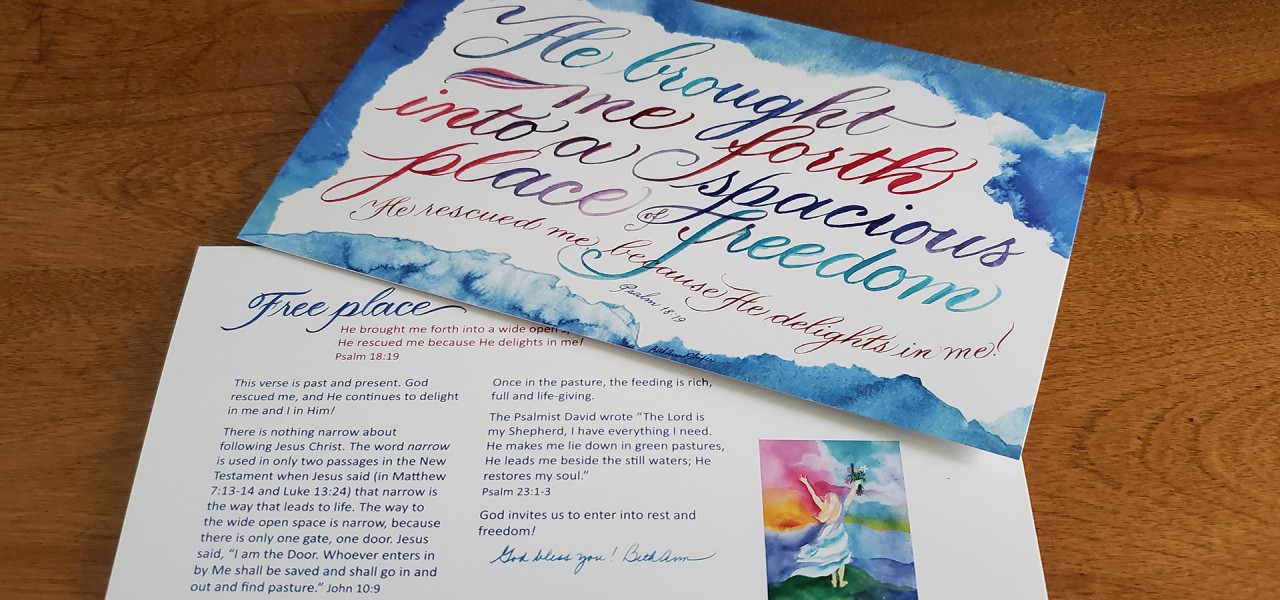 He brought
me forth
into a spacious
place of freedom
He rescued me because He delights in me!
Psalm 18:19
Free place
He brought me forth into a wide open
He rescued me because He delights in me!
Psalm 18:19
This verse is past and present. God
rescued me, and He continues to delight
in me and I in Him!
There is nothing narrow about
following Jesus Christ. The word narrow
is used in only two passages in the New
Testament when Jesus said (in Matthew
7:13-14 and Luke 13:24) that narrow is
the way that leads to life. The way to
the wide open space is narrow, because
there is only one gate, one door. Jesus
said, “I am the Door. Whoever enters in
by Me shall be saved and shall go in and
out and find pasture.” John 10:9
Once in the pasture, the feeding is rich,
full and life-giving.
The Psalmist David wrote “The Lord is
my Shepherd, I have everything I need.
He makes me lie down in green pastures,
He leads me beside the still waters; He
restores my soul.”
Psalm 23:1-3
God invites us to enter into rest and
freedom!
God bless you! BethAnn